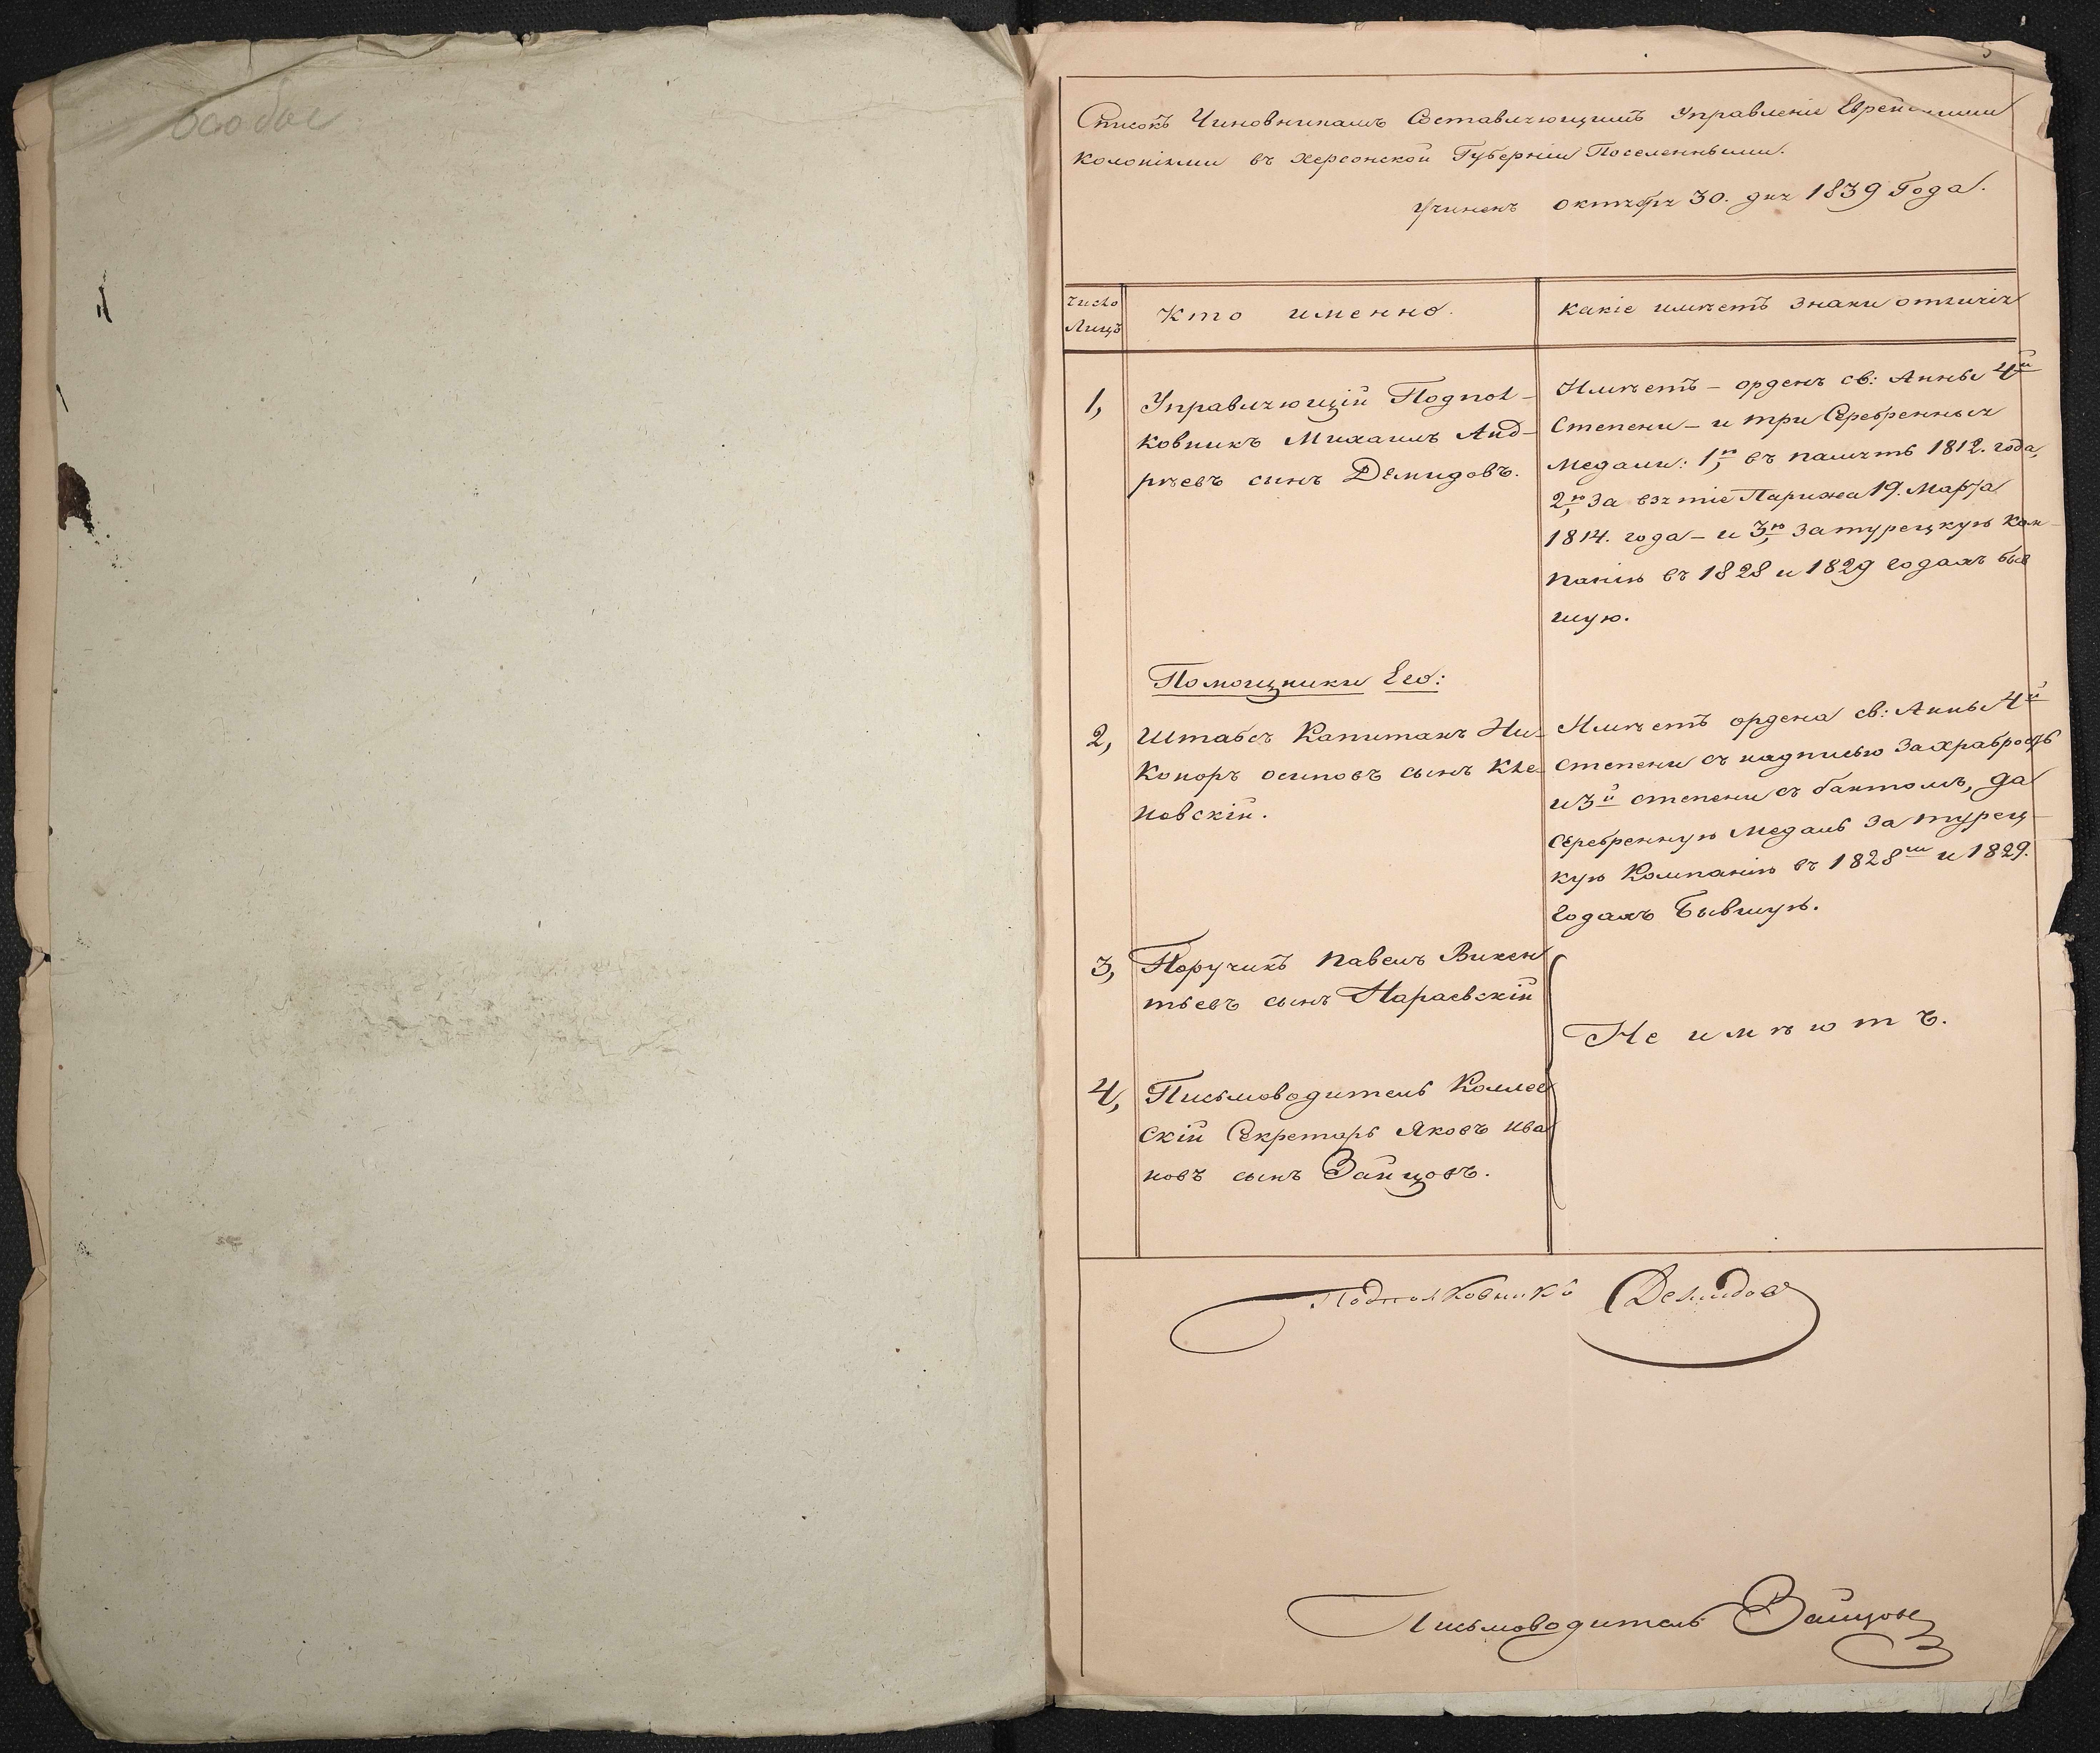 особое
Списокъ Чиновникамъ Составляющимъ Управленіе Еврейскими
Колоніями въ Херсонской Губерніи Поселенными.
Учиненъ октября 30. дня 1839 Года.
Число
Лицъ
Кто именно.
какіе имѣетъ Знаки отличія
1, Управляющій Подпол-
ковникъ Михаилъ Анд-
рѣевъ сынъ Демидовъ.
Имѣетъ - орденъ св: Анны 4й
Степени - и три Серебренныя
Медали: 1ю въ память 1812. года,
2ю за взятіе Парижа 19. Марта
1814. года - и 3ю за турецкую Кам-
панію въ 1828 и 1829 годахъ быв
шую.
Помощники Его:
2, Штабсъ Капитанъ Ни-
коноръ осиповъ сынъ Кле-
новскій.
Имѣетъ ордена св: Анны 4й
степени съ надписью За храбрость
и 3й степени съ бантомъ, да
Серебренную Медаль за турец-
кую Компанію въ 1828м и 1829.
годахъ Бывшую.
3, Поручикъ Павелъ Викен
тьевъ сынъ Нараевскій
4, Письмоводитель Коллеж
Скій Секретарь Яковъ Ива
новъ сынъ Зайцовъ.
Не имѣютъ.
Подполковникъ Демидовъ
Письмоводитель Зайцовъ